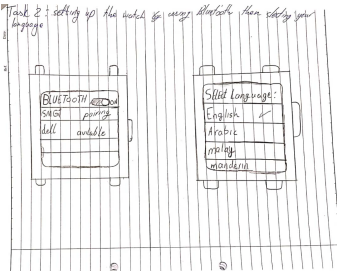 Task 2: setting up the watch by using bluetooth then slecting your
language
BLUETOOTH ON
SNG pairing
dell avalable
Select Language:
English ✓
Arabic
malay
manderin